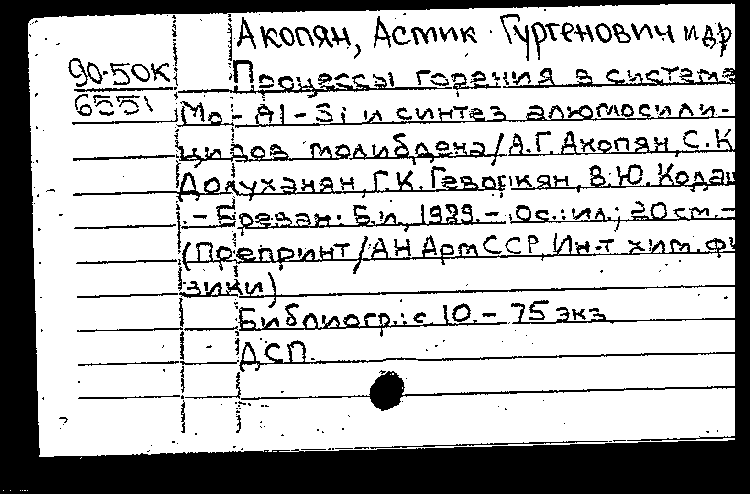 Акопян, Астик Гургенович и др
90-50К Процессы горения в системе
6551 Mo-Al-Si и синтез алюмосили-
цидов молибдена/А.Г. Акопян, С.К
Долуханян, Г.К. Геворкян, В.Ю. Кодаш
.- Ереван: Б.и, 1989.- 10с.: ил.; 20 см.-
(Препринт/АН АрмССР, Ин-т хим. фи
зики)
Библиогр.: с 10.- 75 экз
ДСП.